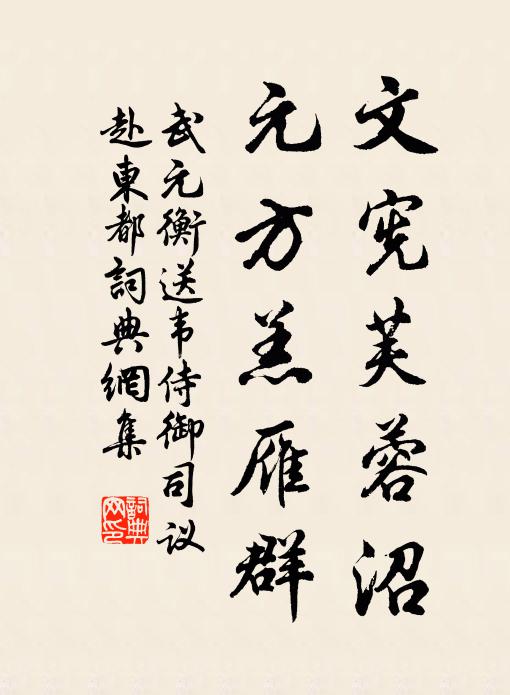 文宪芙蓉沼
元方羔雁群
武元衡送韦侍御司议
赴東都詞典網集
詞典
网印